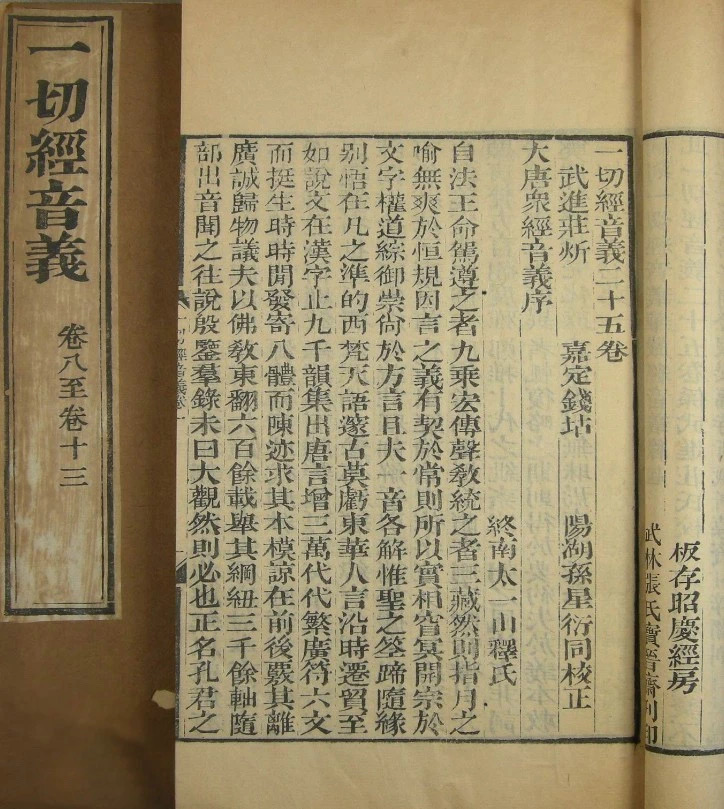 一切經音義
卷八至卷十三
板存昭慶經房
武林張氏寶晉齋刊印
一切經音義二十五卷
武進莊炘　嘉定錢坫　陽湖孫星衍同校正
大唐衆經音義序
終南太一山釋氏
自法王命駕遵之者九乘宏傳聲教統之者三藏然則指月之
喻無爽於恒規因言之義有契於常則所以實相窅冥開宗於
文字權道綜御崇尙於方言且夫一音各解惟聖之筌蹄隨緣
别悟在凡之準的西梵天語邃古莫虧東華人言沿時遷貿至
如說文在漢字止九千韻集出唐言增三萬代代繁廣符六文
而挺生時時閒發寄八體而陳迹求其本模諒在前後覈其離
廣誠歸物議夫以佛教東翻六百餘載舉其綱紐三千餘軸隨
部出音聞之往說殷鑒羣錄未曰大觀然則必也正名孔君之